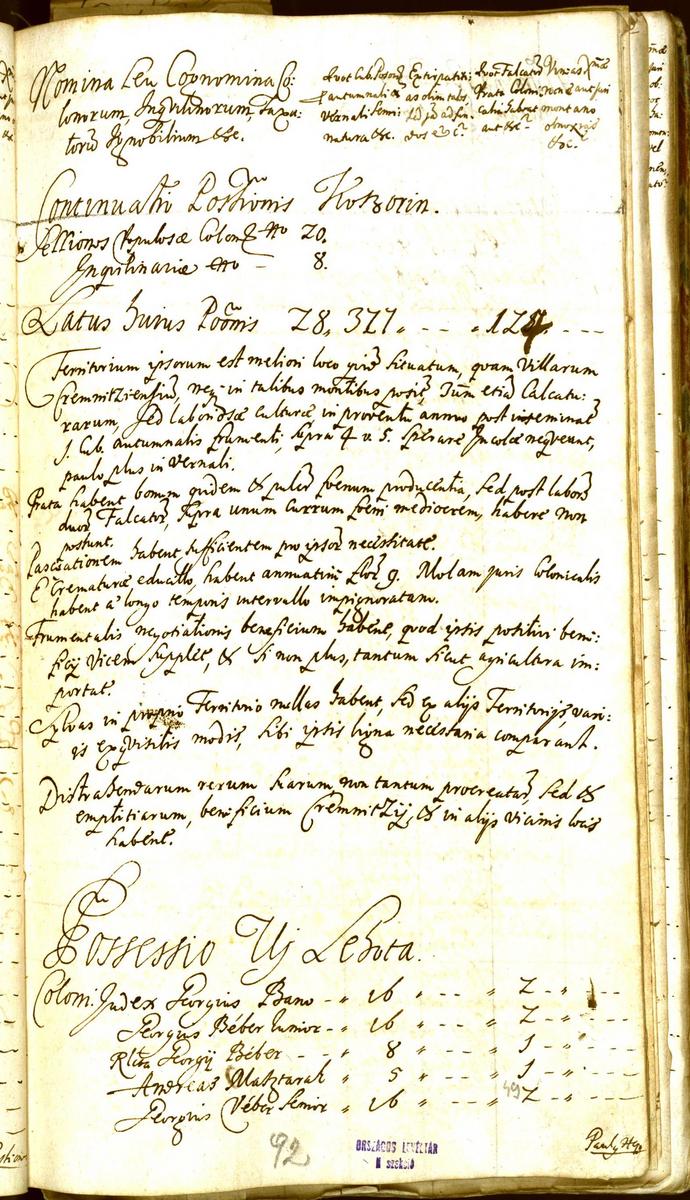 Nomina Seu Cognomina Co:
lonorum, Inquilinorum, Taxa:
Ignobilium &c.
Quot Cub. Poson.
autumnalis &
vernalis Semi:
natura &c.
Extirpatiti:
as olim tales
Quot Falcator
Prata Coloni
aut &c.
Vineas
montano
obnoxias
&c.
Continuatio Possionis Koszorin.
Sessiones Populosae Colon. No 20.
Inquilinariae No – 8.
Latus hujus Possionis 28, 377 „ – – – „ 127 – – –
Territorium ipsorum est meliori loco situatum, quam Villarum
Cremnitziensium, neq. in talibus montibus
rarum, Sed laboriosae culturae in proventu annuo post inseminat.
1. Cub. autumnalis frumenti, supra 4 v. 5. sperare Incolae nequeunt,
paulo plus in vernali.
Prata habent bonum quidem & foenum producentia, Sed post labores
duor. Falcator. supra unum currum foeni mediocrem, habere non
possunt.
Pascuationem habent sufficientem pro ipsor. necessitate.
E Crematurae educillo, habent annuatim flor. 9. Molam juris Colonicalis
habent a longo temporis intervallo impignoratam.
Frumentalis negotiationis beneficium habent, quod ipsis positivi beni:
ficij vicem supplet, & si non plus, tantum sicut agricultura im:
portat.
Sylvas in proprio Territorio nullas habent, sed ex alijs Territorijs vari:
is exquisitis modis, sibi ipsis ligna necessaria comparant.
Distrahendarum rerum suarum, non tantum procreatar. sed &
emptitiarum, beneficium Cremnitzij, & in alijs vicinis locis
habent.
Possessio Uj Lehota.
Coloni. Judex Georgius Bano – „ 16 „ – – „ 2 – „ – – –
Georgius Béber Junior – „ 16 „ – – – „ 2 – „ – – –
Rlta Georgij Béber – – „ 8 „ – – – „ 1 – „ – – –
Andreas Masztarak „ 5 „ – – – „ 1 – „ – – –
Georgius Véber Senior „ 16 „ – – – „ 2 – „ – – –
497
92
ORSZÁGOS LEVÉLTÁR
N szekció